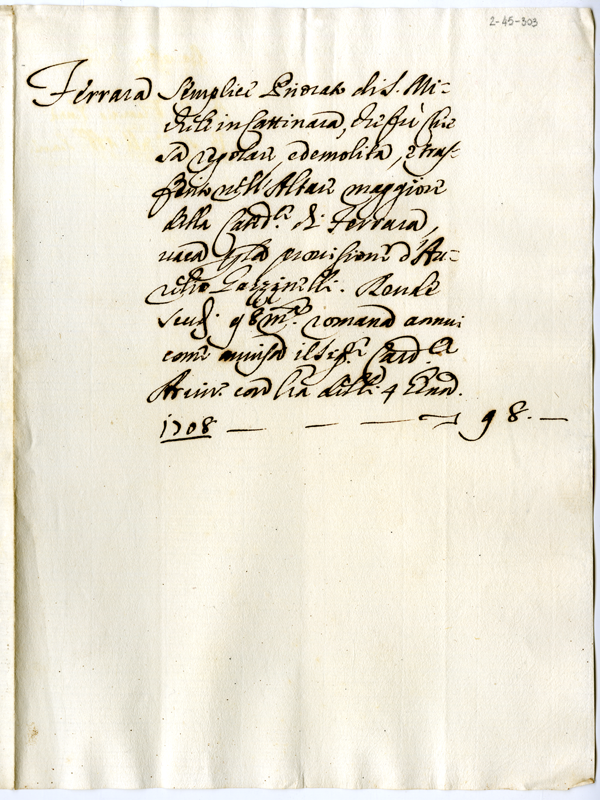 2-45-303
Ferrara Semplice Priorato di S. Mi-
chele in Cattinara, che fù Chie
sa regolare, e demolita, e tras-
ferito nell'Altare maggiore
della Catted.le di Ferrara,
vaca p la provisione d'Au-
relio Gazzinelli. Rende
scudi 98 m.ta romana annui
come avvisa il Sig.r Card.le
con l'ra delli 4
1708 — — — 98. —